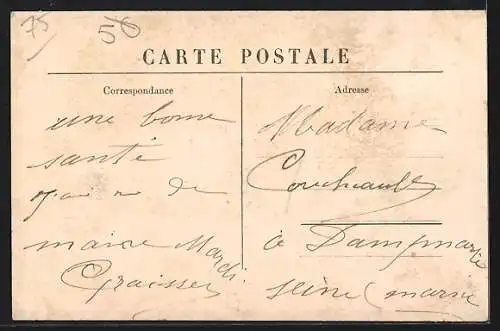 75
50
CARTE POSTALE
Correspondance
une bonne
santé
de
maice Mardi
Graisser
Adresse
Madame
à Dampmartin
Seine (marne